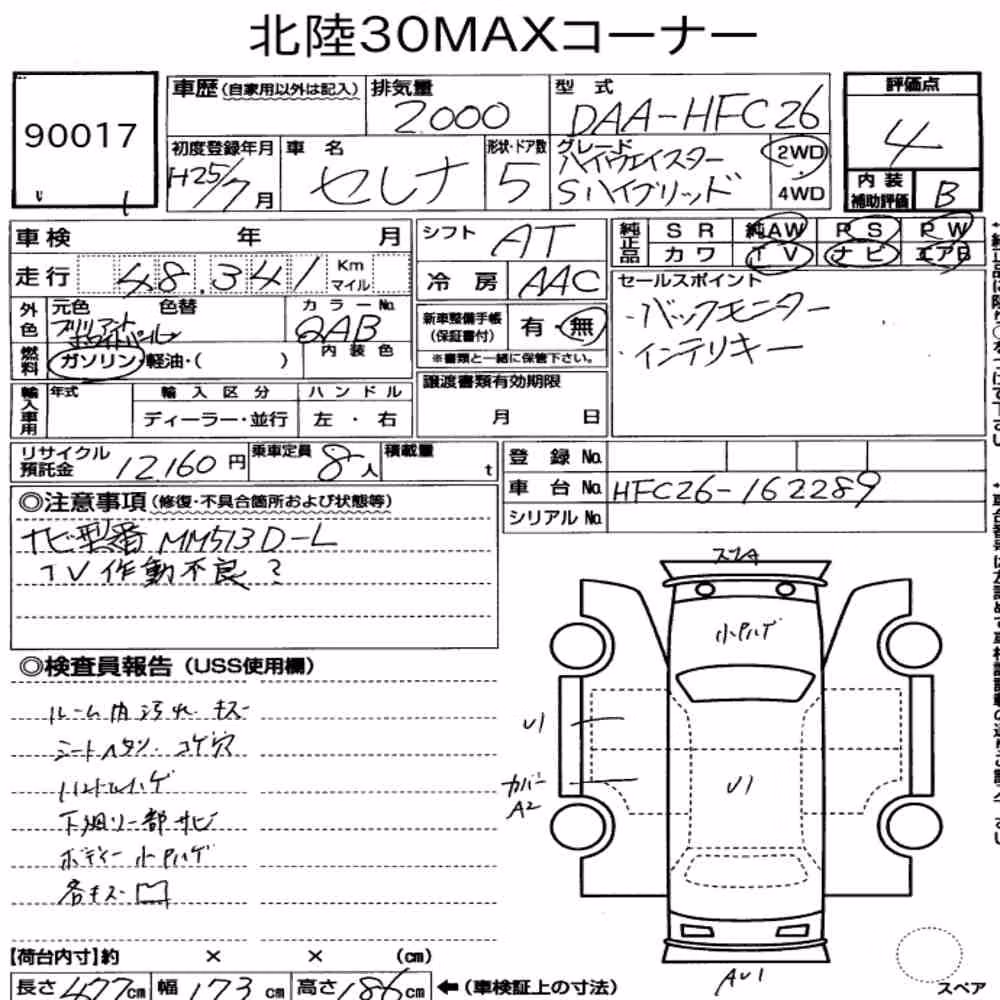 北陸30MAXコーナー
90017
車歴 (自家用以外は記入)
排気量
2000
型式
DAA-HFC26
評価点
4
初度登録年月
H25/7月
車名
セレナ
形状・ドア数
5
グレード
ハイウェイスター
Sハイブリッド
2WD
4WD
内装
補助評価
B
車検 年 月
シフト
AT
純正品
SR 純AW PS PW
カワ TV ナビ エアB
走行 48.341 Km
マイル
冷房 AAC
セールスポイント
・バックモニター
・インテリキー
外色
元色 色替
ブリリアント
ホワイトパール
カラーNo.
QAB
新車整備手帳
(保証書付)
有・無
※書類と一緒に保管下さい。
内装色
燃料
ガソリン・軽油・( )
譲渡書類有効期限
月 日
輸入車用
年式
輸入区分
ハンドル
ディーラー・並行
左・右
リサイクル
預託金
12.160円
乗車定員
8人
積載量
t
登録No.
車台No. HFC26-162289
シリアルNo.
◎注意事項 (修復・不具合箇所および状態等)
ナビ型番 MM513D-L
TV作動不良?
◎検査員報告 (USS使用欄)
ルーム内汚れ キズ
シートヘタリ コゲ穴
ハンドルハゲ
下廻り一部サビ
ボディー小Pハゲ
各キズ凹
スリA
小Pハゲ
U1
カバー
A2
U1
AU1
【荷台内寸】約 × × (cm)
長さ 477cm 幅 173cm 高さ 186cm ←(車検証上の寸法)
スペア